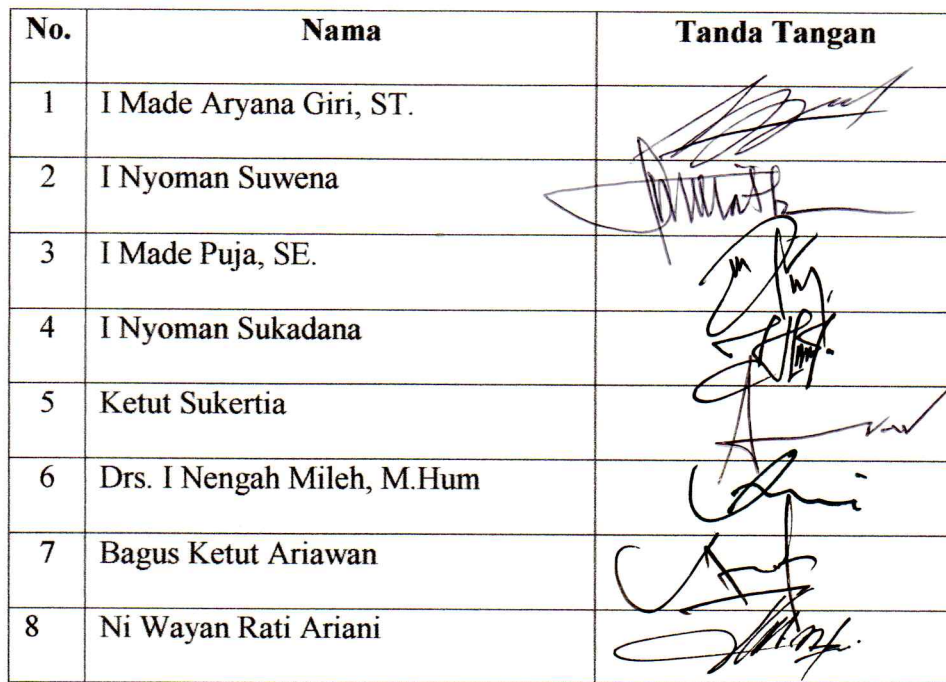 No. Nama Tanda Tangan
1 I Made Aryana Giri, ST.
2 I Nyoman Suwena
3 I Made Puja, SE.
4 I Nyoman Sukadana
5 Ketut Sukertia
6 Drs. I Nengah Mileh, M.Hum
7 Bagus Ketut Ariawan
8 Ni Wayan Rati Ariani